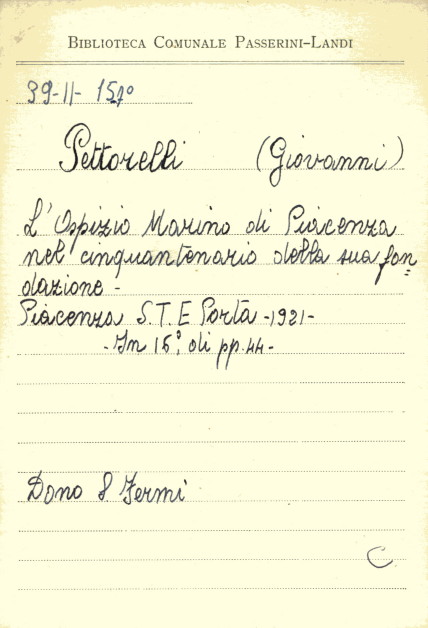 BIBLIOTECA COMUNALE PASSERINI-LANDI
39-II-
Pettorelli (Giovanni)
L'Ospizio Marino di Piacenza
nel cinquantenario della sua fon
dazione -
Piacenza S.T.E Porta -1921-
-In 16°, di pp. 44-
Dono S Fermi
C